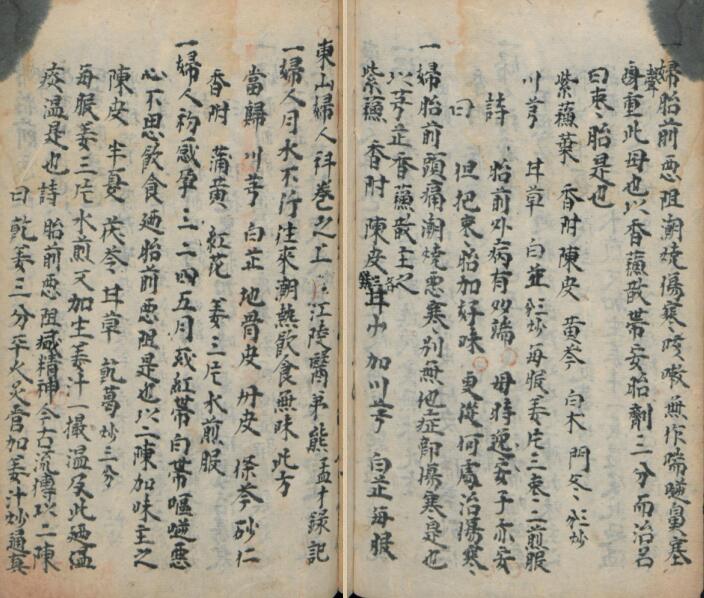 一婦胎前惡阻潮燒傷寒咳嗽無作喘嗌鼻塞
聲
身重此毋也以香蘓散帶安胎劑三分而治名
曰束〻胎是也
紫蘓葉 香附 陳皮 黄芩 白术 門冬〻
川芎 甘草 白並 炒 每服姜三片棗二煎服
詩 胎前外病有多端 母時
曰 但把束〻胎加好味 更從何處治傷寒〻
一婦胎前頭痛潮燒惡寒別無他症卽傷寒是也
以芎芷香蘓散主之
紫蘓 香附 陳皮 甘 加川芎 白芷 每服
東山婦人科卷之上 江陵醫弟熊孟才錄記
一婦人月水不行往來潮熱飲食無味此方
當歸 川芎 白芷 地骨皮 丹皮 條芩 砂仁
香附 蒲黄 紅花 姜三片水煎服
一婦人初感孕三二四五月或紅帶白帶嘔嗌惡
心不思飲食廼胎前惡阻是也以二陳加味主之
陳皮 半夏 茯苓 甘草 乾葛炒三分
每服姜三片水煎又加生姜汁一撮溫
痰溫是也 詩 胎前惡阻 精神 今古流傳以二陳
曰 乾姜三分平火 當加姜汁炒通真